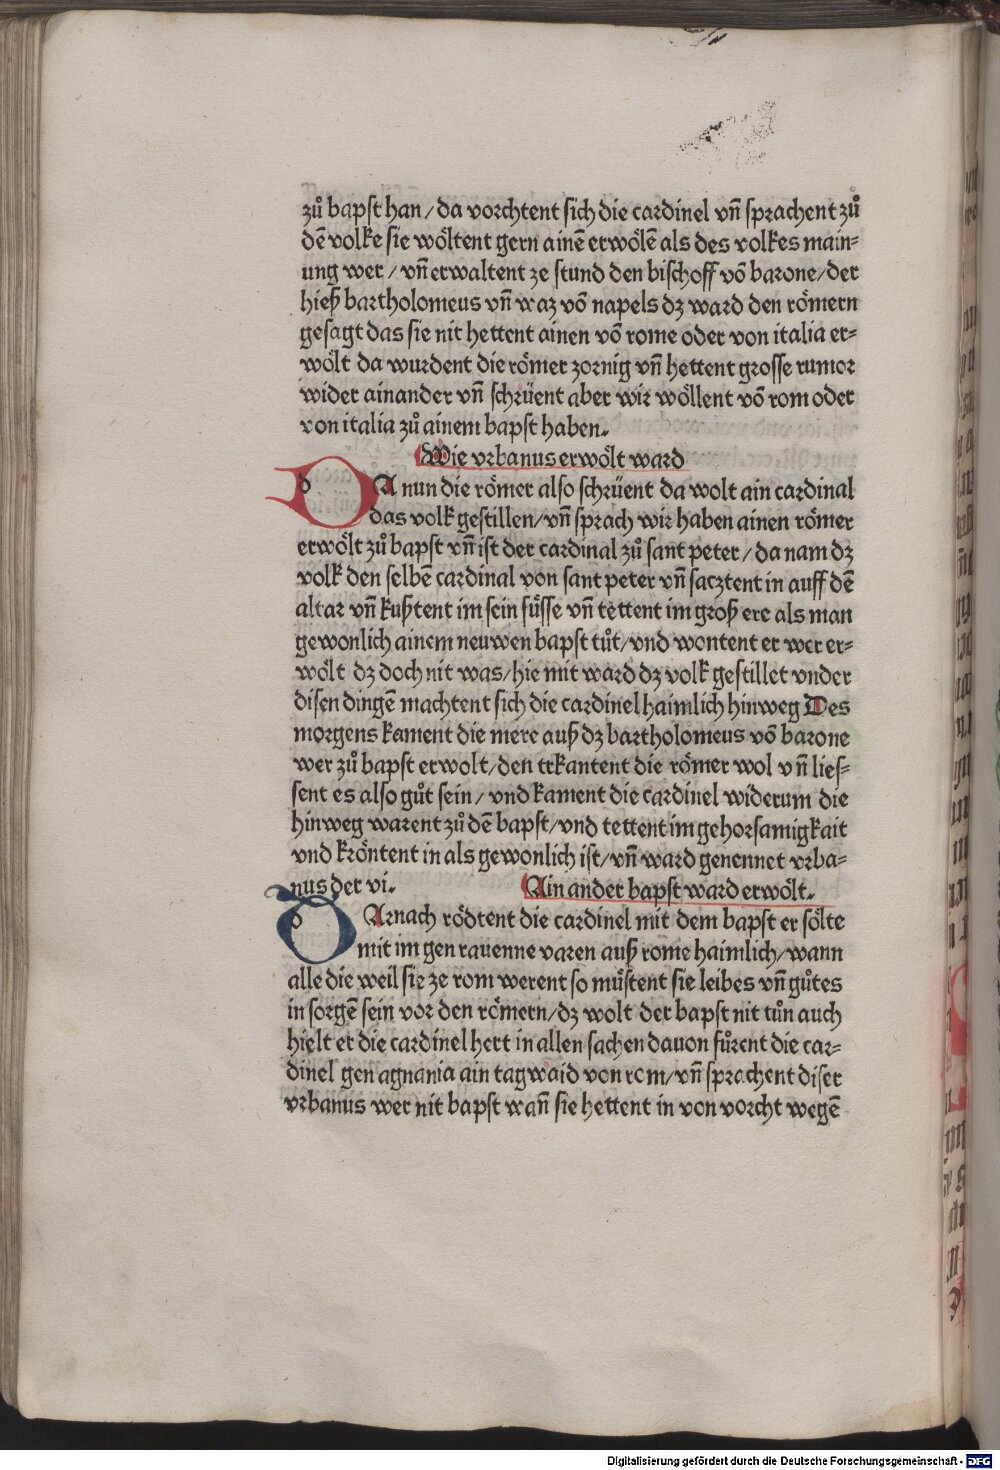 zů bapst han/da vorchtent sich die cardinel vn̄ sprachent zů
dē volke sie wöltent gern ainē erwölē als des volkes main⸗
ung wer/vn̄ erwaltent ze stund den bischoff vō barone/der
hieß bartholomeus vn̄ waz vō napels dz ward den römern
gesagt das sie nit hettent ainen vō rome oder von italia er⸗
wölt da wurdent die römer zornig vn̄ hettent grosse rumor
wider ainander vn̄ schrüent aber wir wöllent vō rom oder
von italia zů ainem bapst haben.
Wie vrbanus erwölt ward
d DA nun die römer also schrüent da wolt ain cardinal
das volk gestillen/vn̄ sprach wir haben ainen römer
erwölt zů bapst vn̄ ist der cardinal zů sant peter/da nam dz
volk den selbē cardinal von sant peter vn̄ sacztent in auff dē
altar vn̄ kußtent im sein füsse vn̄ tettent im groß ere als man
gewonlich ainem neuwen bapst tůt/vnd wontent er wer er⸗
wölt dz doch nit was/hie mit ward dz volk gestillet vnder
disen dingē machtent sich die cardinel haimlich hinweg Des
morgens kament die mere auß dz bartholomeus vō barone
wer zů bapst erwolt/den trkantent die römer wol vn̄ lies⸗
sent es also gůt sein/vnd kament die cardinel widerum die
hinweg warent zů dē bapst/vnd tettent im gehorsamigkait
vnd kröntent in als gewonlich ist/vn̄ ward genennet vrba⸗
nus der vi. Ain ander bapst ward erwölt.
d DArnach rödtent die cardinel mit dem bapst er sölte
mit im gen rauenne varen auß rome haimlich/wann
alle die weil sie ze rom werent so můstent sie leibes vn̄ gůtes
in sorgē sein vor den römern/dz wolt der bapst nit tůn auch
hielt er die cardinel hert in allen sachen dauon fůrent die car⸗
dinel gen agnania ain tagwaid von rom/vn̄ sprachent diser
vrbanus wer nit bapst wan̄ sie hettent in von vorcht wegē
Digitalisierung gefördert durch die Deutsche Forschungsgemeinschaft - DFG